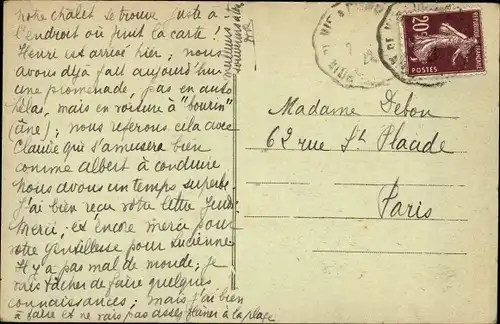 notre chalet se trouve juste à
l'endroit où finit la carte !
Henri est arrivé hier ; nous
avons déjà fait aujourd'hui
une promenade, pas en auto
hélas, mais en voiture à "bourin"
(âne) ; nous referons cela avec
Claude qui s'amusera bien
comme Albert à conduire
Nous avons un temps superbe.
J'ai bien reçu votre lettre Jeudi
Merci, et encore merci pour
votre gentillesse pour Lucienne
Il y a pas mal de monde ; je
vais tâcher de faire quelques
connaissances ; mais j'ai bien
à faire et ne vais pas assez flâner à la plage
Madame Debou
62 rue St Placide
Paris
20c
REPUBLIQUE FRANÇAISE
POSTES